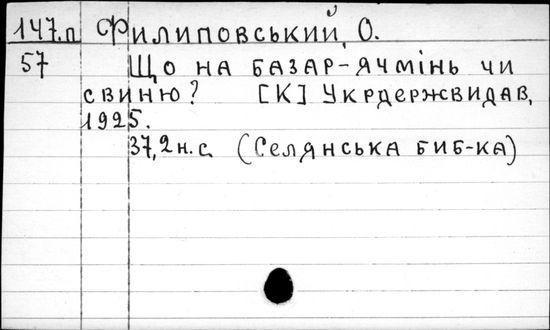 147.п Филиповський, О.
57 Що на базар-ячмінь чи
свиню? [К] Укрдержвидав,
1925.
37,2н.с. (Селянська биб-ка)